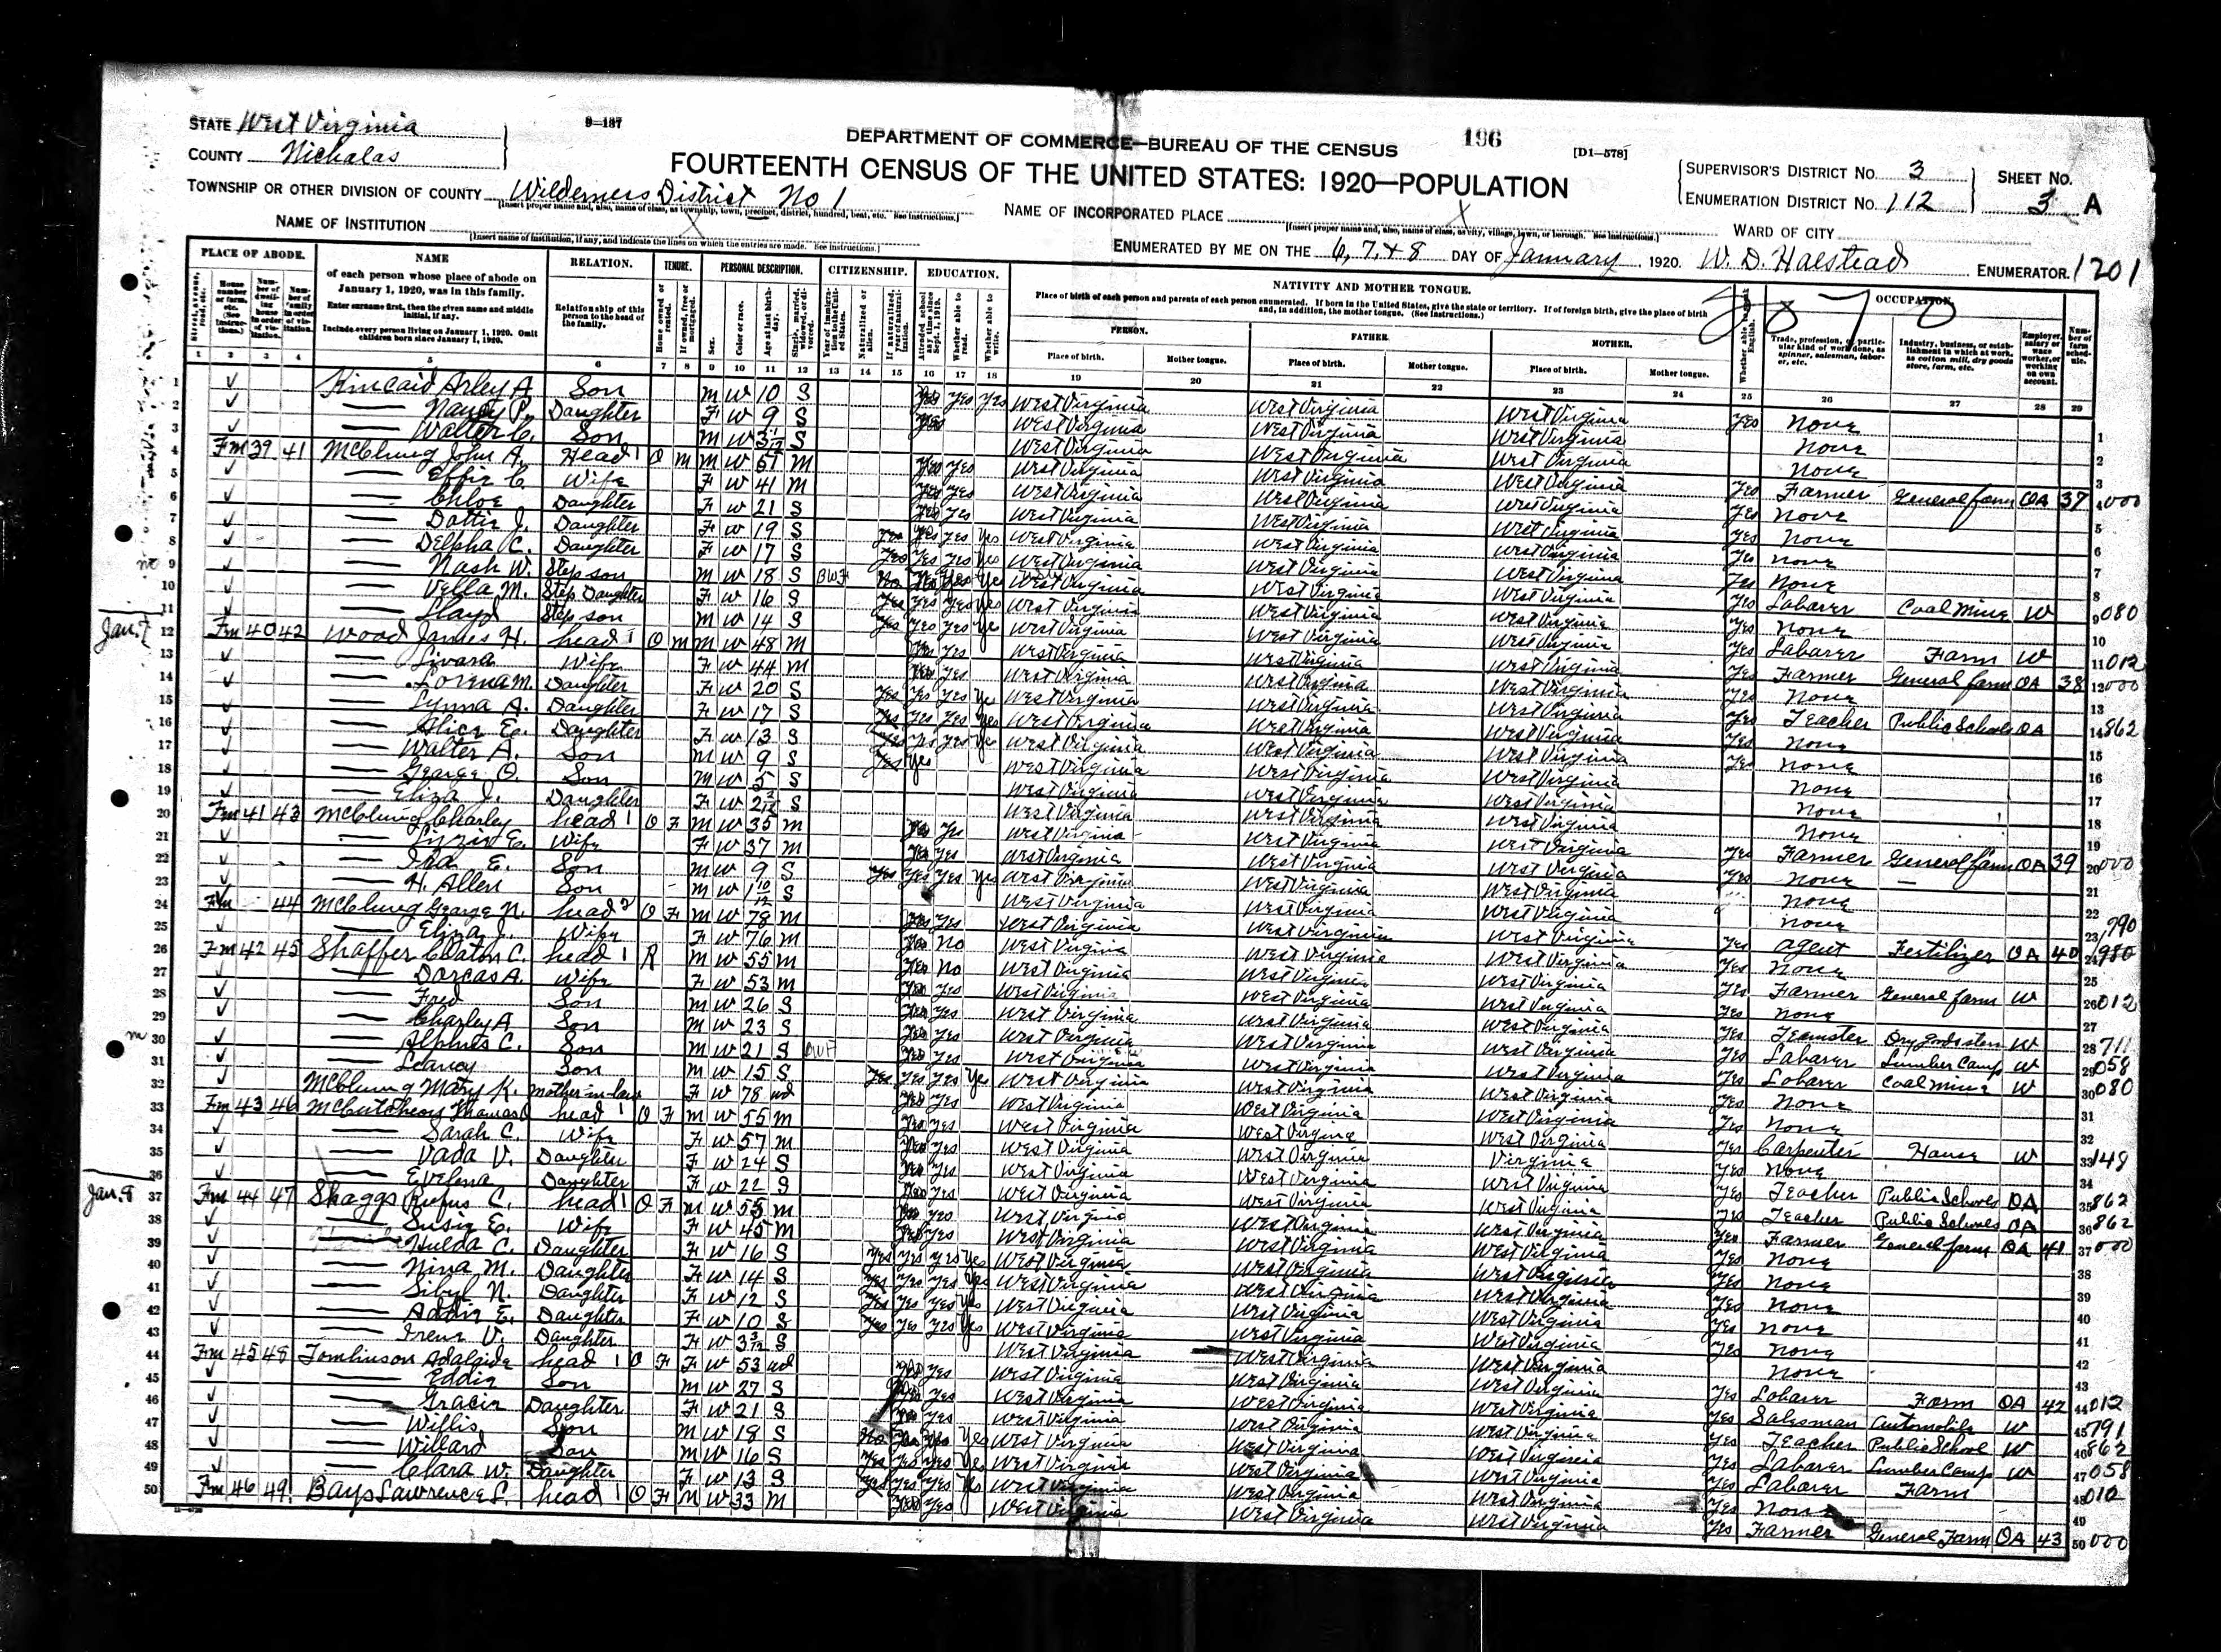 STATE West Virginia
COUNTY Nicholas
9-187
DEPARTMENT OF COMMERCE—BUREAU OF THE CENSUS
196
[D1-578]
FOURTEENTH CENSUS OF THE UNITED STATES: 1920—POPULATION
SUPERVISOR'S DISTRICT No. 3
SHEET No.
ENUMERATION DISTRICT No. 112
3 A
TOWNSHIP OR OTHER DIVISION OF COUNTY Wilderness District No 1
NAME OF INCORPORATED PLACE X
NAME OF INSTITUTION X
WARD OF CITY
ENUMERATED BY ME ON THE 6, 7, & 8 DAY OF January, 1920. W. D. Halstead ENUMERATOR. 1201
PLACE OF ABODE. NAME RELATION. TENURE. PERSONAL DESCRIPTION. CITIZENSHIP. EDUCATION. NATIVITY AND MOTHER TONGUE. OCCUPATION.
of each person whose place of abode on January 1, 1920, was in this family.
Enter surname first, then the given name and middle initial, if any.
Include every person living on January 1, 1920. Omit children born since January 1, 1920.
Relationship of this person to the head of the family.
Place of birth of each person and parents of each person enumerated. If born in the United States, give the state or territory. If of foreign birth, give the place of birth and, in addition, the mother tongue. (See Instructions.)
PERSON. FATHER. MOTHER.
Place of birth. Mother tongue. Place of birth. Mother tongue. Place of birth. Mother tongue.
1 2 3 4 5 6 7 8 9 10 11 12 13 14 15 16 17 18 19 20 21 22 23 24 25 26 27 28 29
1 Kincaid Arley A Son M W 10 S Yes Yes Yes West Virginia West Virginia West Virginia Yes None
2 Nancy P. Daughter F W 9 S Yes West Virginia West Virginia West Virginia None
3 Walter C. Son M W S West Virginia West Virginia West Virginia None
4 Fm 39 41 McClung John A. Head 1 O M M W 51 M Yes Yes West Virginia West Virginia West Virginia Yes Farmer General farm OA 37 000
5 Effie C. Wife F W 41 M Yes Yes West Virginia West Virginia West Virginia Yes None
6 Chloe Daughter F W 21 S Yes Yes West Virginia West Virginia West Virginia Yes None
7 Dottie J. Daughter F W 19 S Yes Yes Yes Yes West Virginia West Virginia West Virginia Yes None
8 Delpha C. Daughter F W 17 S Yes Yes Yes Yes West Virginia West Virginia West Virginia Yes None
9 Nash W. Step son M W 18 S Yes Yes West Virginia West Virginia West Virginia Yes Labarer Coal Mine W 080
10 Vella M. Step Daughter F W 16 S Yes Yes Yes Yes West Virginia West Virginia West Virginia Yes None
11 Lloyd Step son M W 14 S Yes Yes Yes Ye West Virginia West Virginia West Virginia Yes Labarer Farm W 012
Jan. 7
12 Fm 40 42 Wood James H. head 1 O M M W 48 M Yes Yes West Virginia West Virginia West Virginia Yes Farmer General farm OA 38 000
13 Sivara Wife F W 44 M Yes Yes West Virginia West Virginia West Virginia Yes None
14 Lorena M. Daughter F W 20 S Yes Yes Yes Ye West Virginia West Virginia West Virginia Yes Teacher Public Schools OA 862
15 Lynna A. Daughter F W 17 S Yes Yes Yes Yes West Virginia West Virginia West Virginia Yes None
16 Alice E. Daughter F W 13 S Yes Yes Yes Ye West Virginia West Virginia West Virginia Yes None
17 Walter A. Son M W 9 S Yes Yes West Virginia West Virginia West Virginia None
18 George O. Son M W 5 S West Virginia West Virginia West Virginia None
19 Eliza J. Daughter F W S West Virginia West Virginia West Virginia None
20 Fm 41 43 McClung Charley head 1 O F M W 35 M Yes Yes West Virginia West Virginia West Virginia Yes Farmer General farm OA 39 000
21 Lizzie E. Wife F W 37 M Yes Yes West Virginia West Virginia West Virginia Yes None
22 Ira E. Son M W 9 S Yes Yes Yes Yes West Virginia West Virginia West Virginia None
23 H. Allen Son M W 1 10/12 S West Virginia West Virginia West Virginia None
24 Fm 44 McClung George N. head 2 O F M W 78 M Yes Yes West Virginia West Virginia West Virginia Yes agent Fertilizer OA 40 980
25 Eliza J. Wife F W 76 M Yes No West Virginia West Virginia West Virginia Yes None
26 Fm 42 45 Shaffer Claton C. head 1 R M W 55 M Yes No West Virginia West Virginia West Virginia Yes Farmer General farm W 012
27 Darcas A. Wife F W 53 M Yes Yes West Virginia West Virginia West Virginia Yes None
28 Fred Son M W 26 S Yes Yes West Virginia West Virginia West Virginia Yes Teamster Dry goods store W 711
29 Charley A Son M W 23 S Yes Yes West Virginia West Virginia West Virginia Yes Labarer Lumber Camp W 058
30 C. Son M W 21 S Yes Yes West Virginia West Virginia West Virginia Yes Labarer Coal mine W 080
31 Son M W 15 S Yes Yes Yes Ye West Virginia West Virginia West Virginia Yes None
32 McClung Mary K. mother-in-law F W 78 wd Yes Yes West Virginia West Virginia West Virginia Yes None
33 Fm 43 46 McCutcheon Thomas head 1 O F M W 55 M Yes Yes West Virginia West Virginia West Virginia Yes Carpenter House W 148
34 Sarah C. Wife F W 57 M Yes Yes West Virginia West Virginia Virginia Yes None
35 Vada V. Daughter F W 24 S Yes Yes West Virginia West Virginia West Virginia Yes Teacher Public Schools OA 862
36 Evelena Daughter F W 22 S Yes Yes West Virginia West Virginia West Virginia Yes Teacher Public Schools OA 862
Jan. 8
37 Fm 44 47 Skaggs Rufus C. head 1 O F M W 55 M Yes Yes West Virginia West Virginia West Virginia Yes Farmer General farm OA 41 000
38 Susie E. Wife F W 45 M Yes Yes West Virginia West Virginia West Virginia Yes None
39 Hulda C. Daughter F W 16 S Yes Yes Yes Yes West Virginia West Virginia West Virginia Yes None
40 Nina M. Daughter F W 14 S Yes Yes Yes Yes West Virginia West Virginia West Virginia Yes None
41 Sibyl N. Daughter F W 12 S Yes Yes Yes Yes West Virginia West Virginia West Virginia Yes None
42 Addie E. Daughter F W 10 S Yes Yes Yes Yes West Virginia West Virginia West Virginia Yes None
43 Irene V. Daughter F W 3 3/12 S West Virginia West Virginia West Virginia None
44 Fm 45 48 Tomlinson Adalaide head 1 O F F W 53 wd Yes Yes West Virginia West Virginia West Virginia Yes Labarer Farm OA 42 012
45 Eddie Son M W 27 S Yes Yes West Virginia West Virginia West Virginia Yes Salesman Automobile W 791
46 Gracie Daughter F W 21 S Yes Yes West Virginia West Virginia West Virginia Yes Teacher Public School W 862
47 Willis Son M W 18 S No Yes Yes Yes West Virginia West Virginia West Virginia Yes Labarer Lumber Camp W 058
48 Willard Son M W 16 S Yes Yes Yes Yes West Virginia West Virginia West Virginia Yes Labarer Farm 012
49 Clara W. Daughter F W 13 S Yes Yes Yes Yes West Virginia West Virginia West Virginia Yes None
50 Fm 46 49 Bays Lawrence S. head 1 O F M W 33 M Yes Yes West Virginia West Virginia West Virginia Yes Farmer General Farm OA 43 000